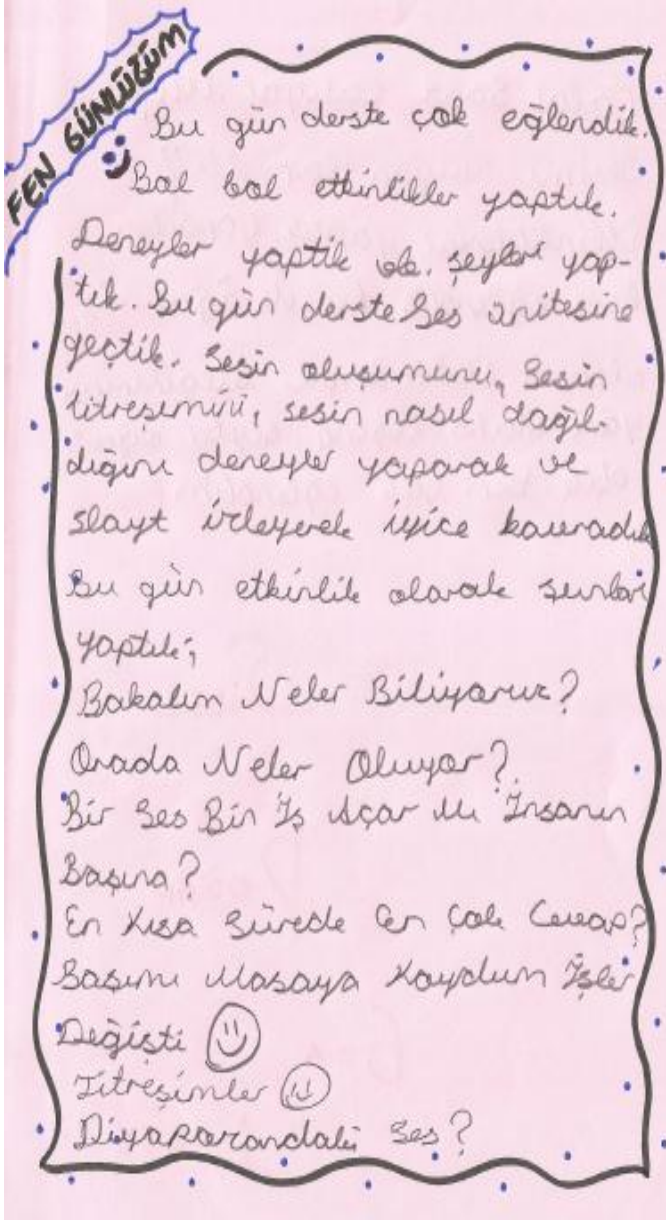 FEN GÜNLÜĞÜM
Bu gün derste çok eğlendik.
Bol bol etkinlikler yaptık.
Deneyler yaptik vb. şeyler yap-
tık. Bu gün derste Ses ünitesine
geçtik. Sesin oluşumunu, Sesin
titreşimini, sesin nasıl dağıl-
dığını deneyler yaparak ve
slayt izleyerek iyice kavradık
Bu gün etkinlik olarak şunları
yaptık;
Bakalım Neler Biliyoruz?
Orada Neler Oluyor?
Bir Ses Bin İş Açar Mı İnsanın
Başına?
En Kısa Sürede En Çok Cevap?
Başımı Masaya Koydum İşler
Değişti
Titreşimler
Diyapazondaki Ses?